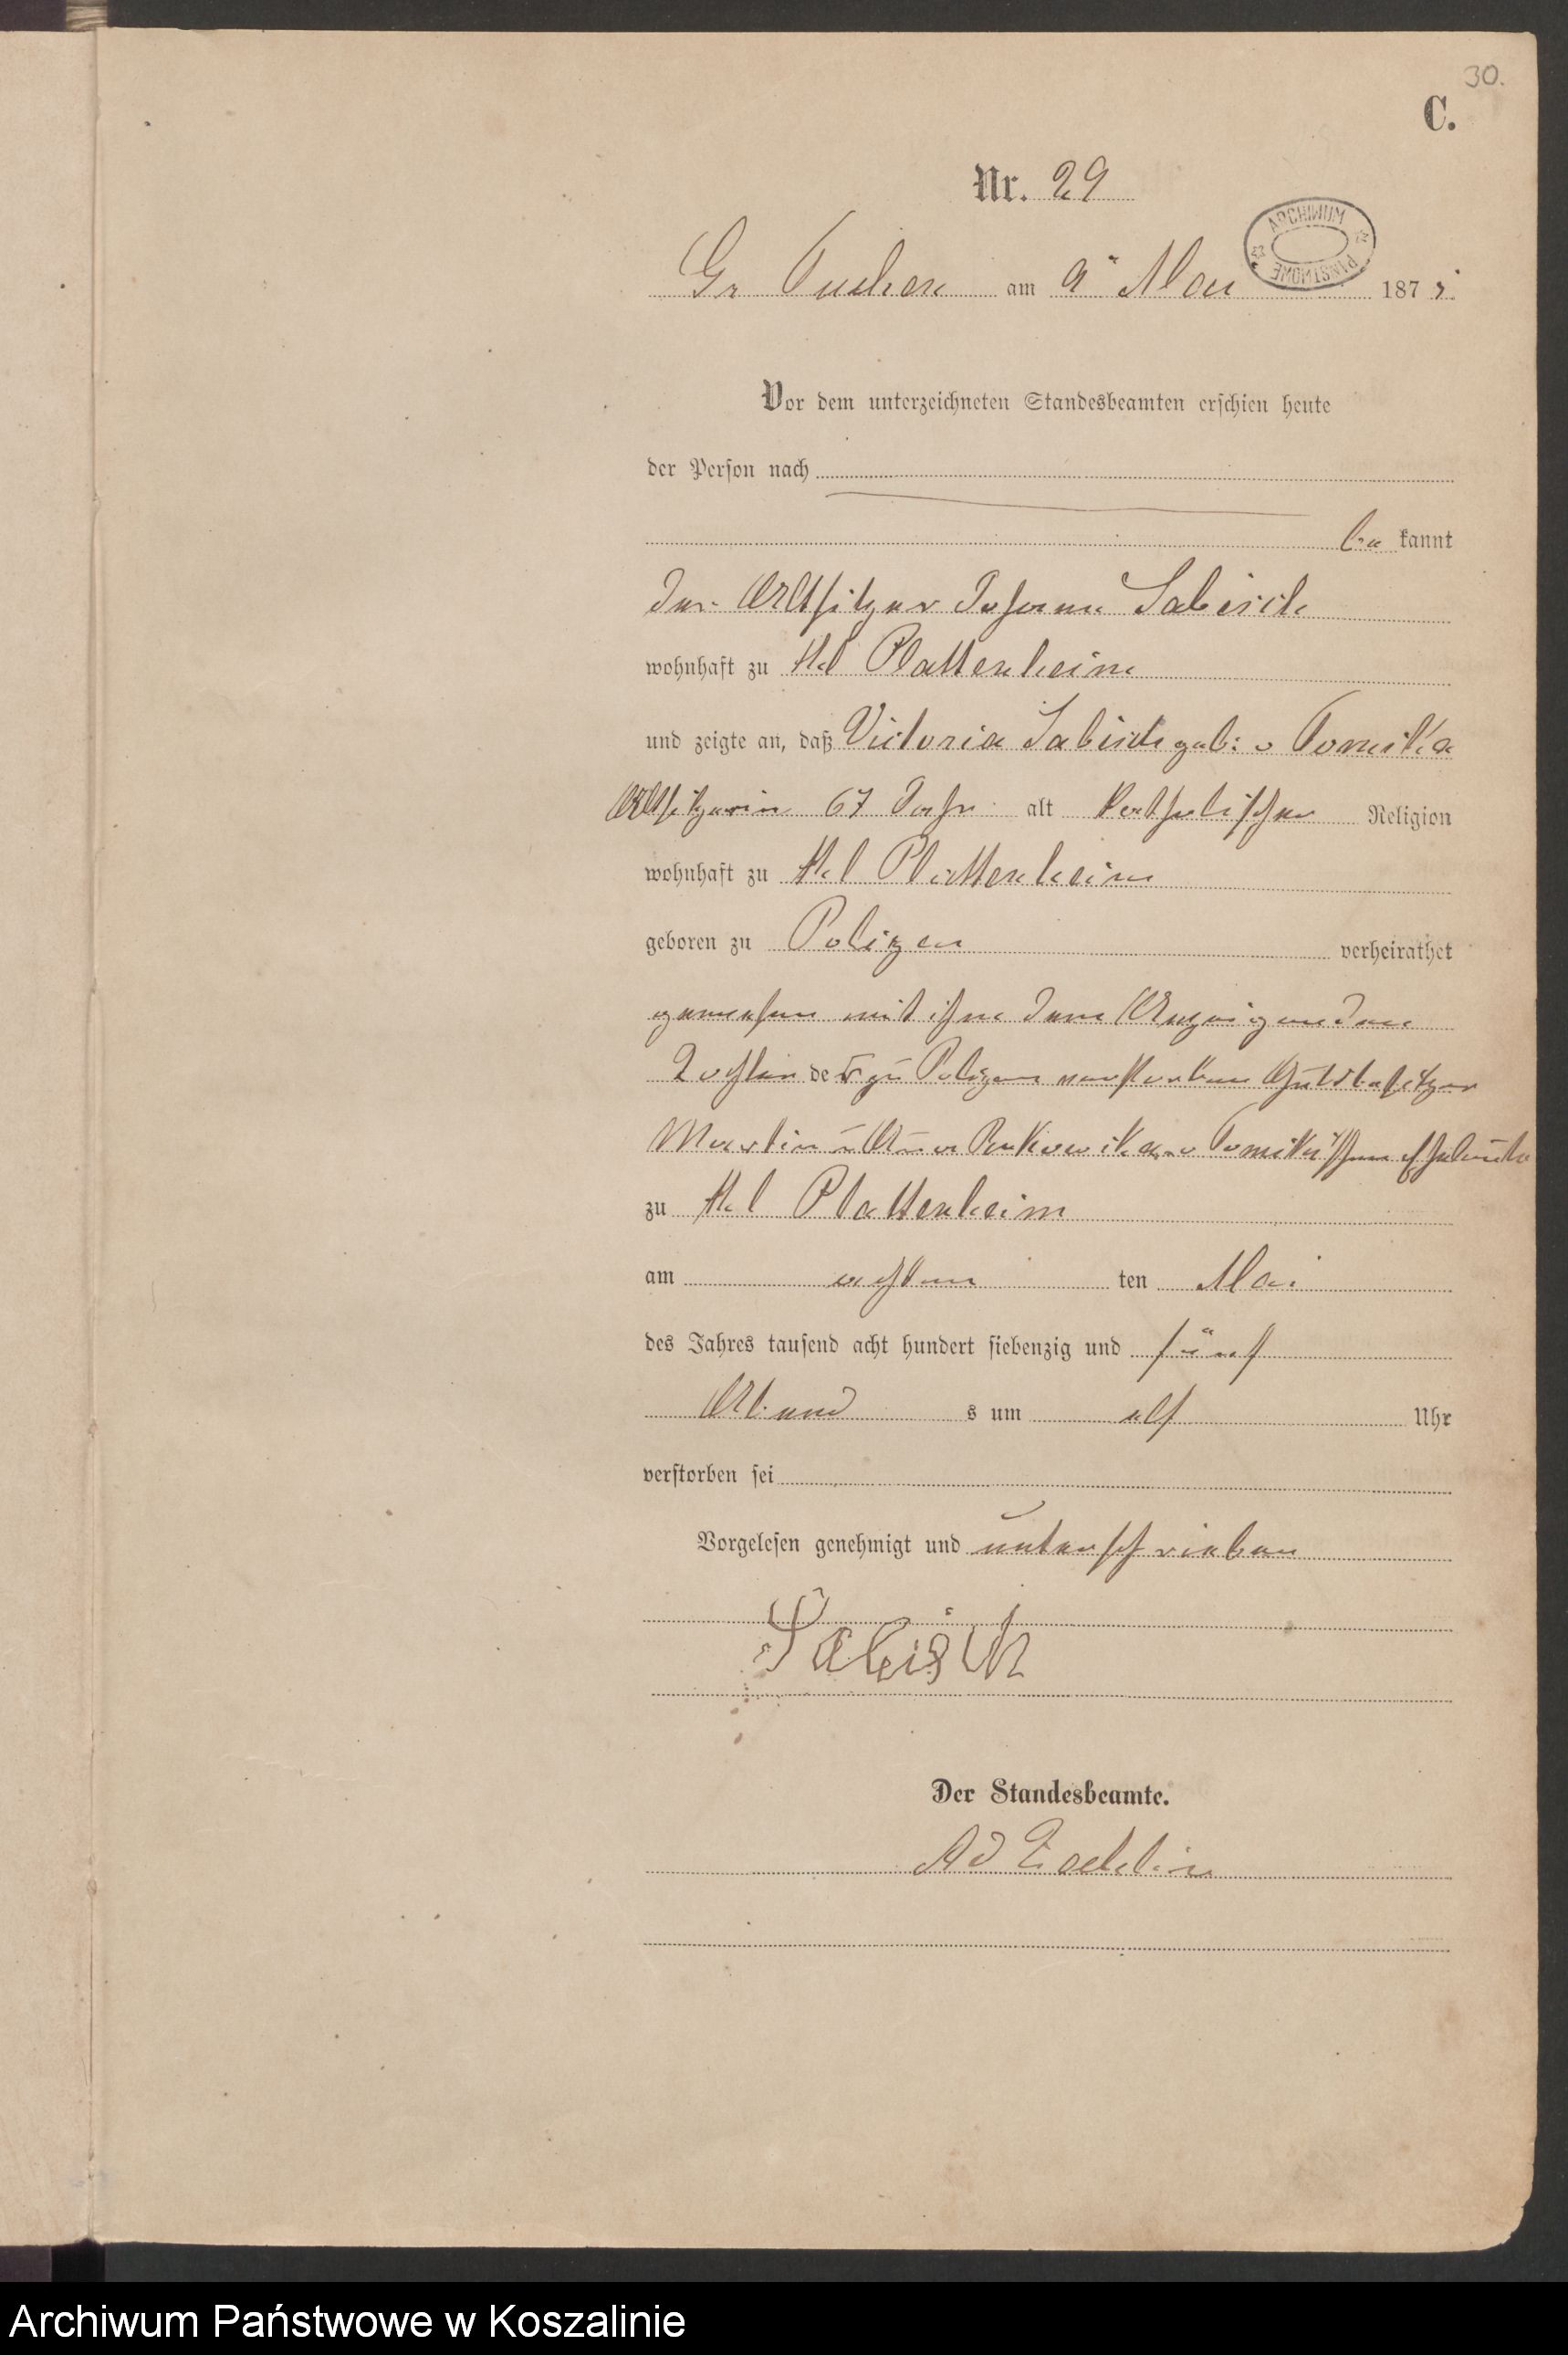 30.
C.
Nr. 29
ARCHIWUM PAŃSTWOWE
Gr Tuchen am 9 Mai 1875
Vor dem unterzeichneten Standesbeamten erschien heute
der Person nach
be kannt
der Altsitzer Johann Sabisch
wohnhaft zu Kl Plattenheim
und zeigte an, daß Victoria Sabisch geb: v
Altsitzerin 67 Jahr alt katholischer Religion
wohnhaft zu Kl Plattenheim
geboren zu Polizen verheirathet
gewesen mit ihm dem Anzeigenden
Tochter der zu Polizen verstorbenen Gutsbesitzer
Martin u Anna
zu Kl Plattenheim
am achten ten Mai
des Jahres tausend acht hundert siebenzig und fünf
Abend s um elf Uhr
verstorben sei
Vorgelesen genehmigt und unterschrieben
Sabisch
Der Standesbeamte.
Archiwum Państwowe w Koszalinie